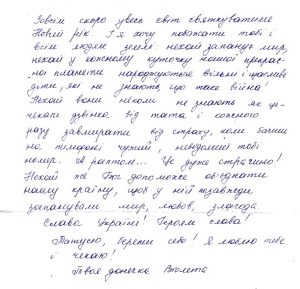 Зовсім скоро увесь світ святкуватиме
Новий рік І я хочу побажати тобі і
всім людям землі: нехай запанує мир,
нехай у кожному куточку нашої прекрас-
ної планети народжуються вільні і щасливі
діти, які не знають, що таке війна!
Нехай вони ніколи не знають як це-
чекати дзвінка від тата і кожного
разу завмирати від страху, коли бачиш
на телефоні чужий, невідомий тобі
номер. А раптом... Це дуже страшно!
Нехай же Бог допоможе об'єднати
нашу країну, щоб у ній назавжди
запанували мир, любов, злагода.
Слава Україні! Героям слава!
Татусю, бережи себе! Я люблю тебе
і чекаю!
Твоя донечка Віолета